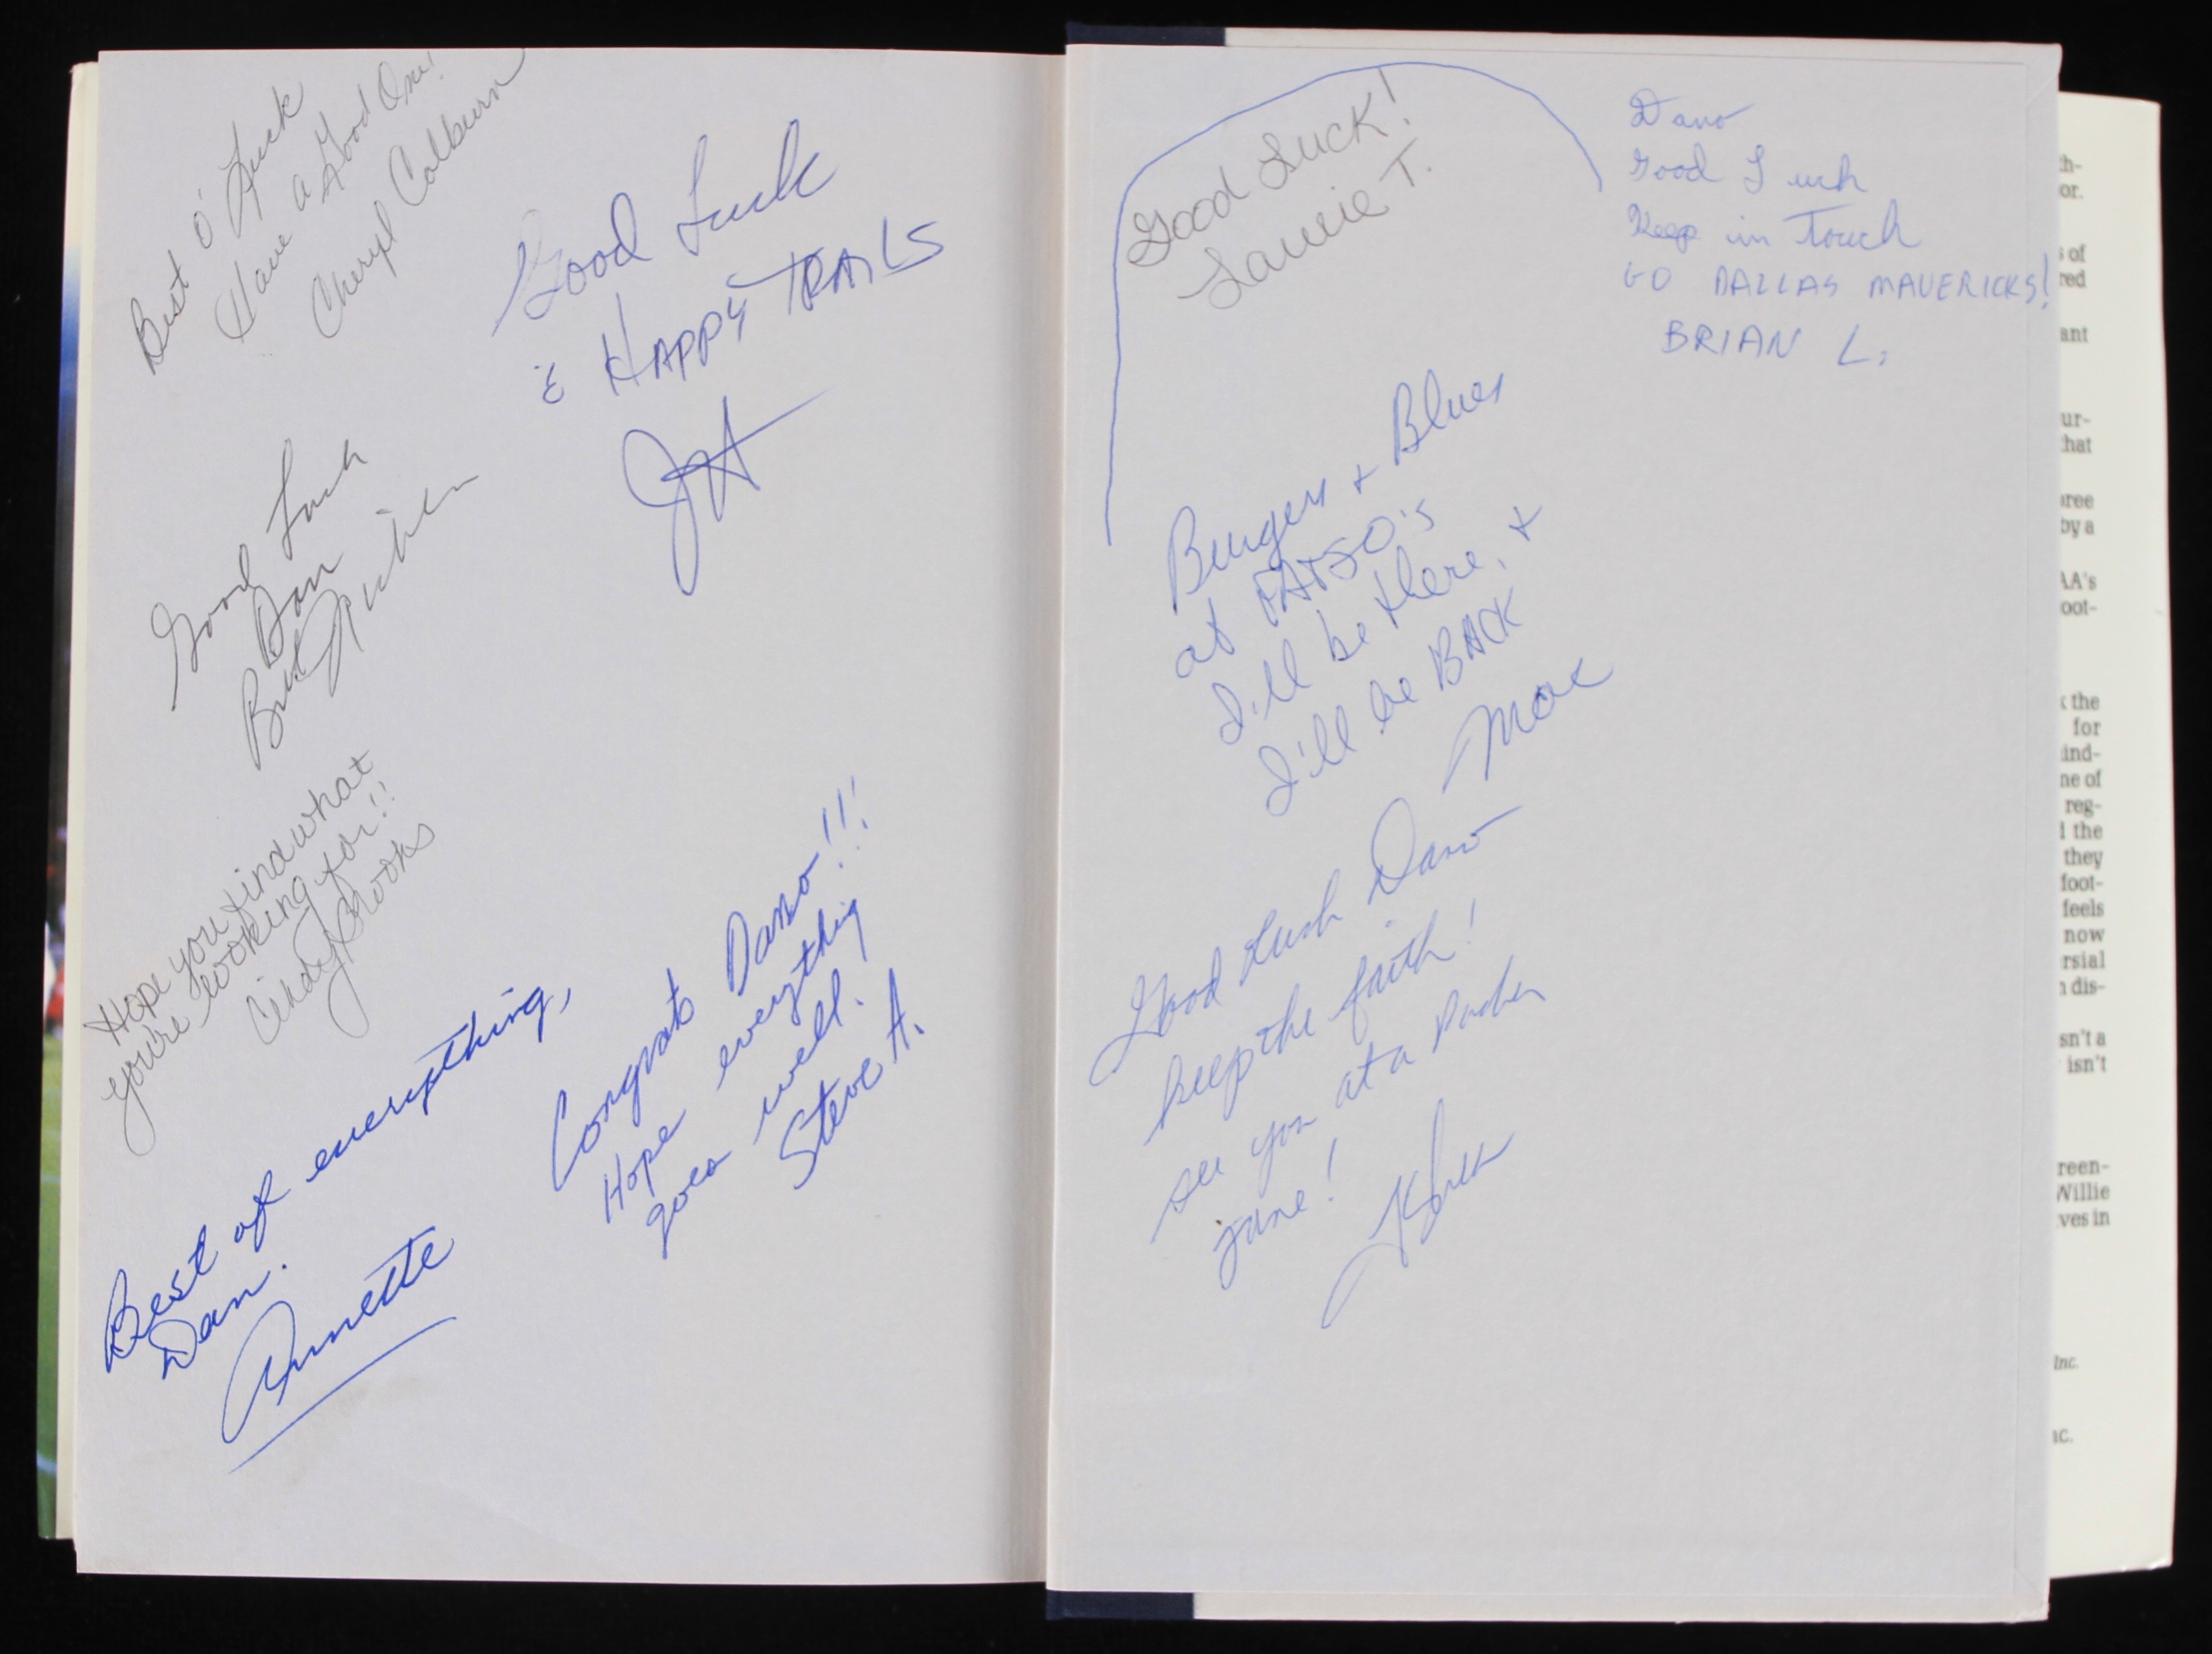 Best O' Luck
Have a Good One!
Cheryl Colburn
Good Luck
& HAPPY TRAILS
Good Luck
Dan
Hope you find what
you're looking for!!
Cindy Brooks
Best of everything,
Dan.
Annette
Congrats Dano!!!
Hope everything
goes well.
Steve A.
Good Luck!
Laurie T.
Dano
Good Luck
Keep in Touch
GO DALLAS MAVERICKS!
BRIAN L.
Burgers + Blues
at FATSO's
I'll be there, +
I'll be BACK
Mac
Good Luck Dano
keep the faith!
see you at a Packer
game!
h-
or.
s of
red
ant
ur-
hat
ree
by a
AA's
oot-
k the
for
ind-
ne of
reg-
d the
they
foot-
feels
now
rsial
n dis-
sn't a
isn't
reen-
Willie
ves in
Inc.
nc.